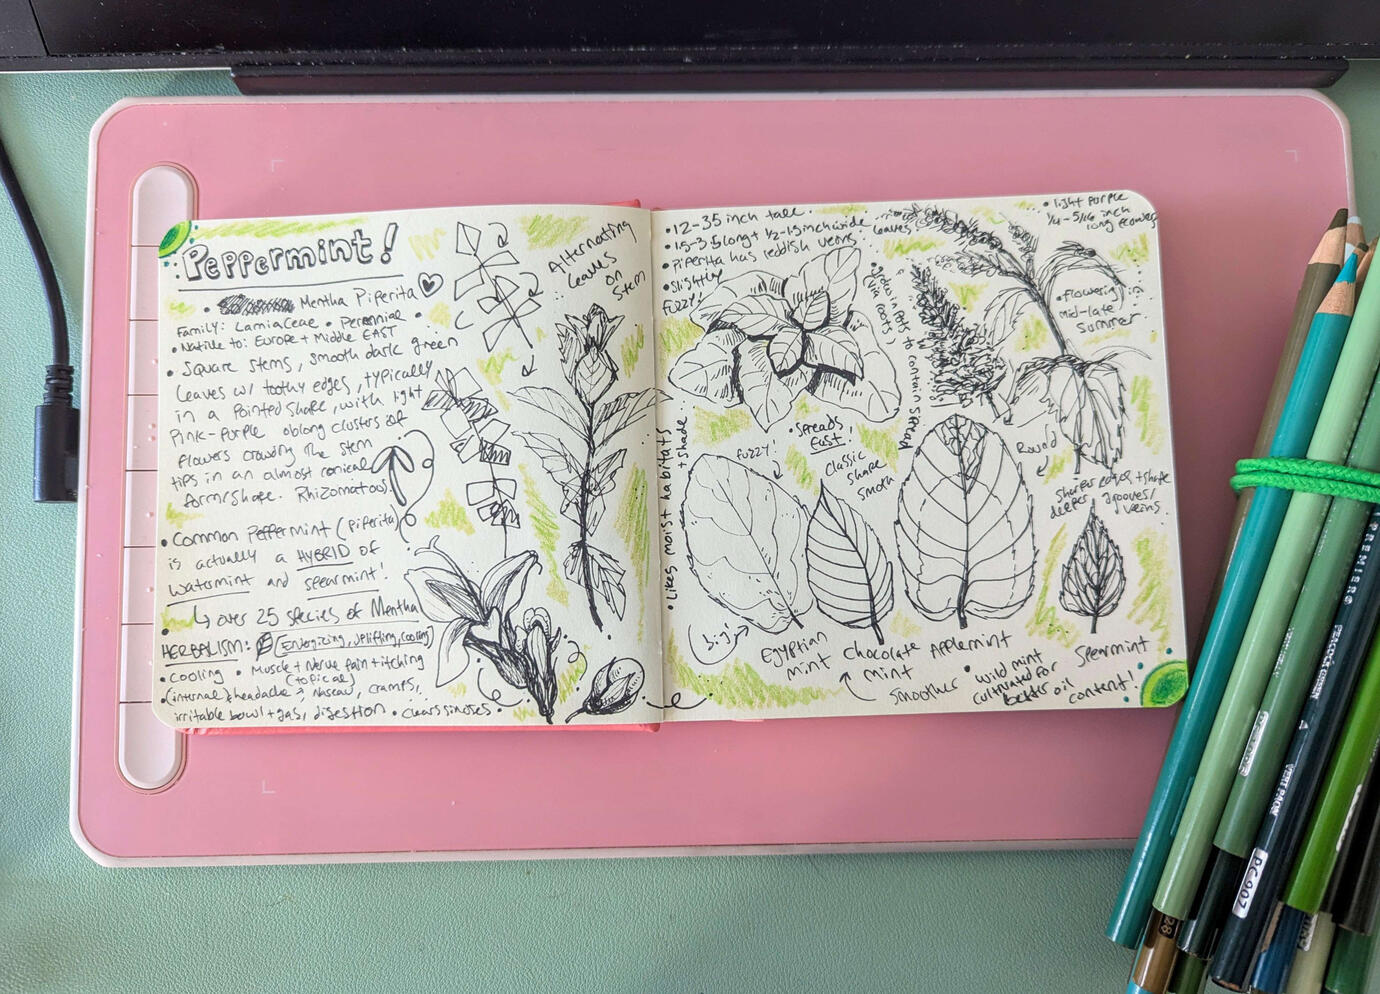 Peppermint!
Mentha Piperita
Family: Lamiaceae • Perennial •
• Native to: Europe + Middle EAST
• Square stems, smooth dark green
leaves w/ toothy edges, typically
in a pointed shape, with light
pink-purple oblong clusters of
flowers crowding the stem
tips in an almost conical
form/shape. Rhizomatous.
• Common Peppermint (piperita)
is actually a HYBRID of
watermint and spearmint!
• over 25 species of Mentha
HERBALISM: [Energizing, uplifting, cooling]
• cooling • Muscle + Nerve pain + itching
(topical)
(internal) headache, Nausea, cramps,
irritable bowl + gas, digestion • clears sinuses •
Alternating
leaves
on
stem
• 12-35 inch tall
• 1.5-3.5 long + ½-1.5 inch wide leaves
• Piperita has reddish veins
• slightly
fuzzy!
• grows in pots to contain spread
(via roots)
• light purple
1/4 - 5/16 inch
long flowers
• flowering in
mid-late
summer
• Likes moist habitats
+ shade
• spreads
fast!
fuzzy!
classic
shape
smooth
Round
sharper edges + shape
deeper grooves/
veins.
big!
Egyptian
mint
Chocolate
mint
Applemint
Spearmint
smoother
• wild mint
cultivated for
better oil
content!
PREMIER
VERT PAON
PC 907